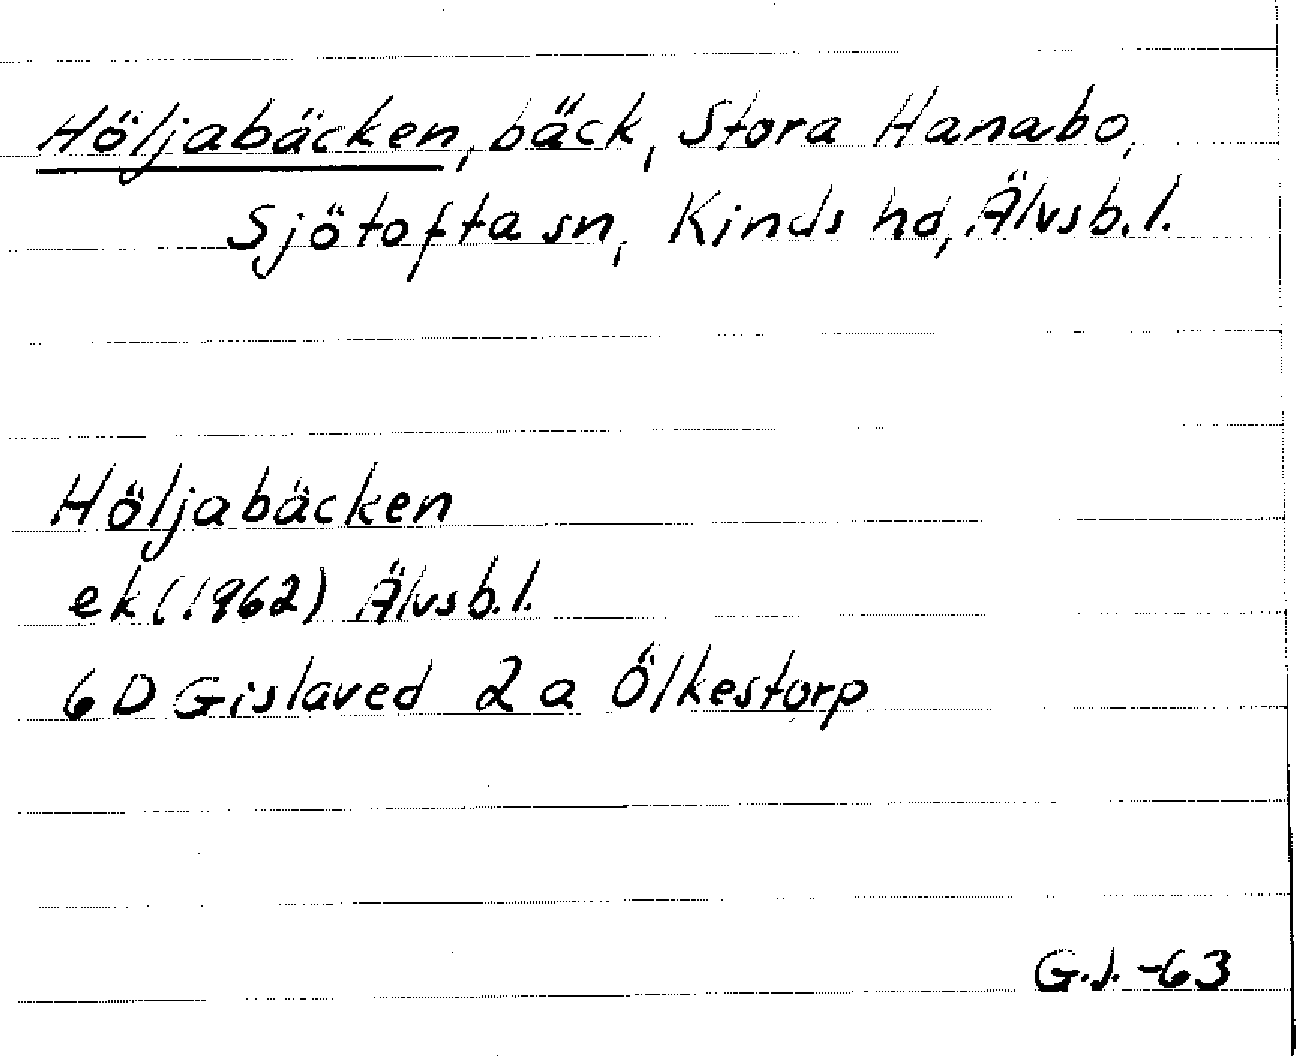 Höljabäcken, bäck, Stora Hanabo,
Sjötofta sn, Kinds hd, Älvsb.l.
Höljabäcken
ek(1962) Älvsb.l.
6D Gislaved 2a Ölkestorp
G.J. -63